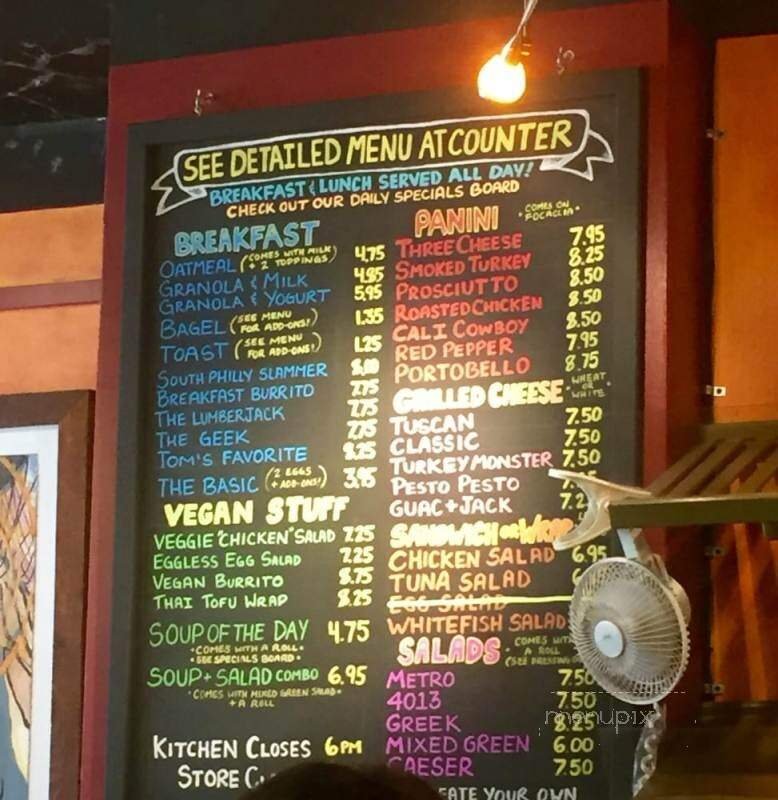 SEE DETAILED MENU AT COUNTER
BREAKFAST & LUNCH SERVED ALL DAY!
CHECK OUT OUR DAILY SPECIALS BOARD
BREAKFAST
OATMEAL (COMES WITH MILK + 2 TOPPINGS) 4.75
GRANOLA & MILK 4.95
GRANOLA & YOGURT 5.95
BAGEL (SEE MENU FOR ADD-ONS!) 1.35
TOAST (SEE MENU FOR ADD-ONS!) 1.25
SOUTH PHILLY SLAMMER
BREAKFAST BURRITO 7.75
THE LUMBERJACK 7.75
THE GEEK 7.75
TOM'S FAVORITE 8.25
THE BASIC (2 EGGS + ADD-ONS!) 3.95
VEGAN STUFF
VEGGIE "CHICKEN" SALAD 7.25
EGGLESS EGG SALAD 7.25
VEGAN BURRITO 8.75
THAI TOFU WRAP 8.25
SOUP OF THE DAY 4.75
•COMES WITH A ROLL•
•SEE SPECIALS BOARD•
SOUP + SALAD COMBO 6.95
•COMES WITH MIXED GREEN SALAD•
+ A ROLL
KITCHEN CLOSES 6PM
STORE
PANINI •COMES ON FOCACCIA•
THREE CHEESE 7.95
SMOKED TURKEY 8.25
PROSCIUTTO 8.50
ROASTED CHICKEN 8.50
CALI COWBOY 8.50
RED PEPPER 7.95
PORTOBELLO 8.75
GRILLED CHEESE •WHEAT OR WHITE•
TUSCAN 7.50
CLASSIC 7.50
TURKEY MONSTER 7.50
PESTO PESTO
GUAC + JACK
SANDWICH OR WRAP
CHICKEN SALAD 6.95
TUNA SALAD
EGG SALAD
WHITEFISH SALAD
SALADS •COMES WITH A ROLL
(SEE
METRO 7.50
4013 7.50
GREEK 8.25
MIXED GREEN 6.00
CAESER 7.50
YOUR OWN
menupix